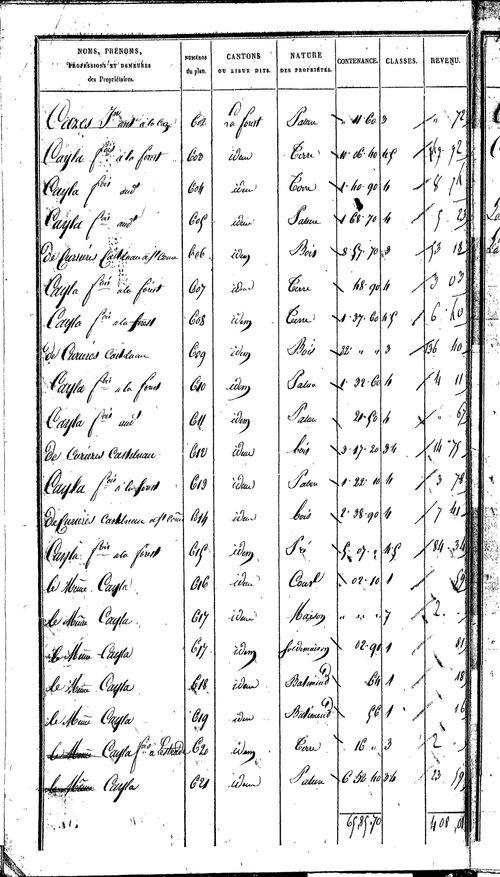 NOMS, PRÉNOMS, PROFESSIONS ET DEMEURES des Propriétaires. NUMÉROS du plan. CANTONS OU LIEUX DITS. NATURE DES PROPRIÉTÉS. CONTENANCE. CLASSES. REVENU.
Cazes 602 La forest Pature " 11 60 3 " 72
Cayla fois à la forest 603 idem Terre 11 06 40 45
Cayla fois audt 604 idem Terre 1 40 90 4 8
Cayla fois audt 605 idem Pature 1 68 70 4 5 23
De Curières Castelnau a St Come 606 idem Bois 8 57 70 3 53 18
Cayla fois à la forest 607 idem Terre 48 90 4 3 03
Cayla fois a la forest 608 idem Terre 1 37 60 45 6 40
de Curières Castelnau 609 idem Bois 22 " " 3 136 40
Cayla fois à la forest 610 idem Pature 1 32 60 4 4 11
Cayla fois audt 611 idem Pature 21 50 4 " 67
de Curières Castelnau 612 idem bois 3 17 20 34 14
Cayla fois à la forest 613 idem Pature 1 22 10 4 3 78
De Curières Castelnau a St Come 614 idem bois 2 38 90 4 7 41
Cayla fois a la forest 615 idem Pré 5 07 " 45 84 34
le Même Cayla 616 idem Cour 02 10 1 59
le Même Cayla 617 idem Maison " " " 7 2 "
le Même Cayla 617 idem Sol de maison 02 90 1 81
le Même Cayla 618 idem Batiment 64 1 18
le Même Cayla 619 idem Batiment 56 1 16
le Même Cayla fois 620 idem Terre 16 " 3 2 "
le Même Cayla 621 idem Pature 6 52 40 34 23 59
65 85 70 408 01